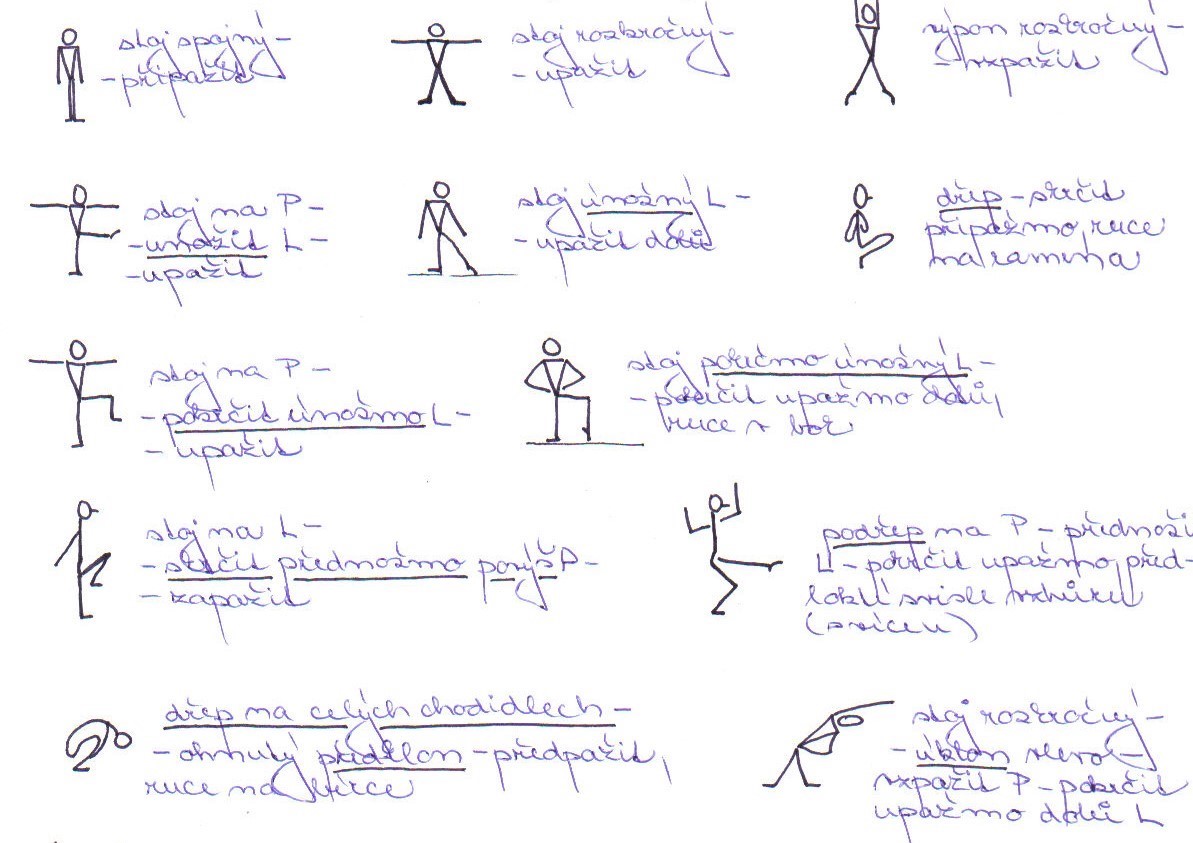 stoj spojný –
– připažit
stoj rozkročný –
– upažit
výpon rozkročný –
– vzpažit
stoj na P –
– unožit L –
– upažit
stoj únožný L –
– upažit dolů
dřep – skrčit
připažmo, ruce
na ramena
stoj na P –
– pokrčit únožmo L –
– upažit
stoj pokrčmo únožný L –
– pokrčit upažmo dolů,
ruce v bok
stoj na L –
– skrčit přednožmo povýš P –
– zapažit
podřep na P – přednoži
L – pokrčit upažmo, před-
loktí svisle vzhůru
(svícen)
dřep na celých chodidlech –
– ohnutý předklon – předpažit,
ruce na
stoj rozkročný –
– úklon vlevo –
vzpažit P – pokrčit
upažmo dolů L